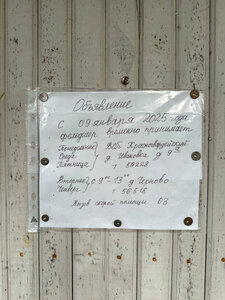 Объявление
С 09 января 2025 года
фельдшер временно принимает
Понедельник ВОБ Красногвардейский
Среда } д Ивановка д 9
Пятница т 52228
Вторник } с 9⁰⁰ - 13⁰⁰ д Черново
Четверг т 56518
Вызов скорой помощи 03